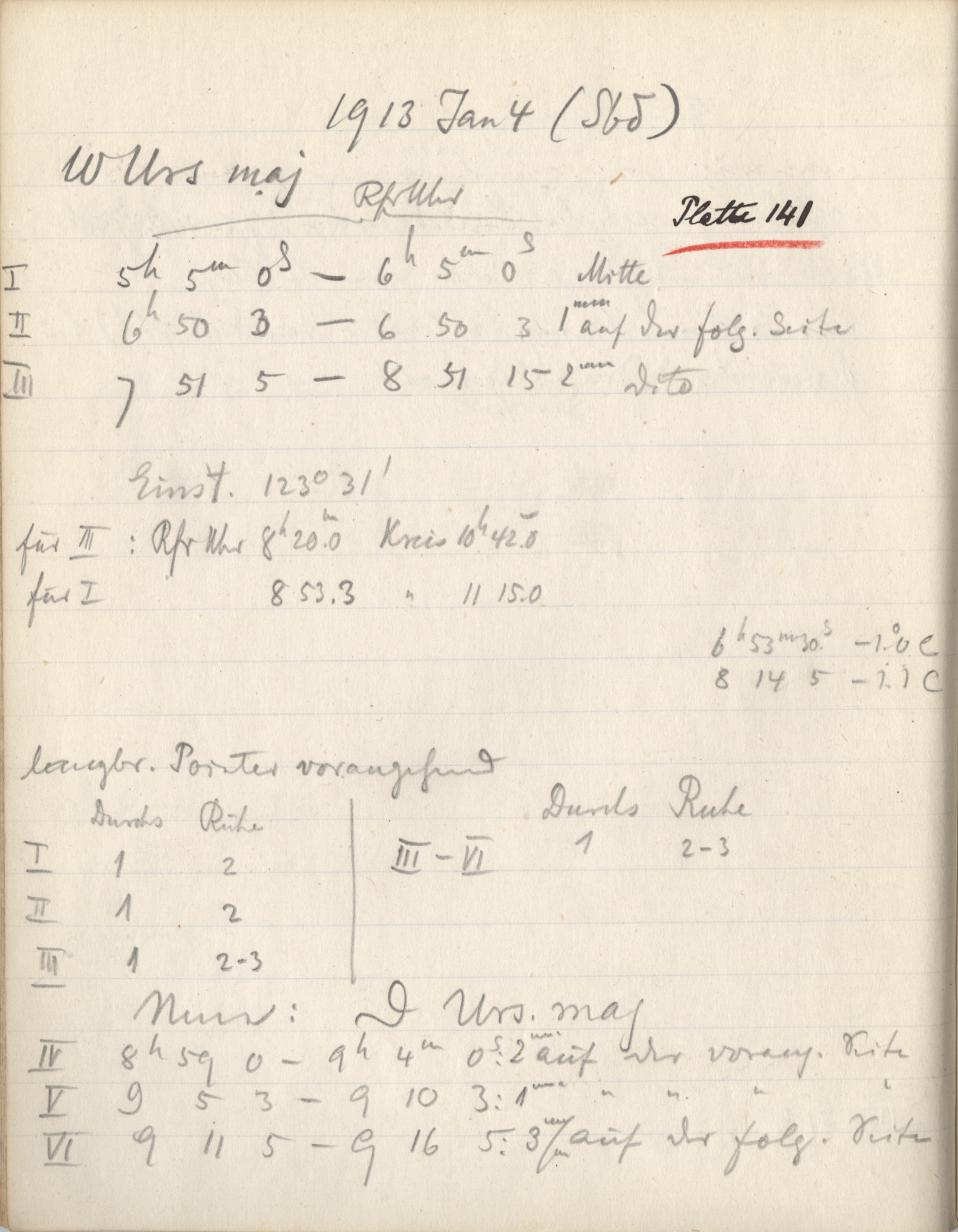 1913 Jan 4 (Sbd)
W Urs maj
Rfr Uhr
Platte 141
I 5h 5m 0s — 6h 5m 0s Mitte
II 6h 50 3 — 6 50 3 1mm auf der folg. Seite
III 7 51 5 — 8 51 15 2mm dito
Einst. 123° 31'
für III : Rfr Uhr 8h 20m.0 Kreis 10h 42m.0
für I 8 53.3 " 11 15.0
6h 53m 30s. -1.°0 C
8 14 5 -1.1 C
langbr. Pointer vorangehend
Durchs Ruhe
I 1 2
II 1 2
III 1 2-3
Durchs Ruhe
III - VI 1 2-3
Nun: Urs. maj
IV 8h 59 0 - 9h 4m 0s: 2mm auf der vorang. Seite
V 9 5 3 - 9 10 3: 1mm " " " "
VI 9 11 5 - 9 16 5: 3mm auf der folg. Seite